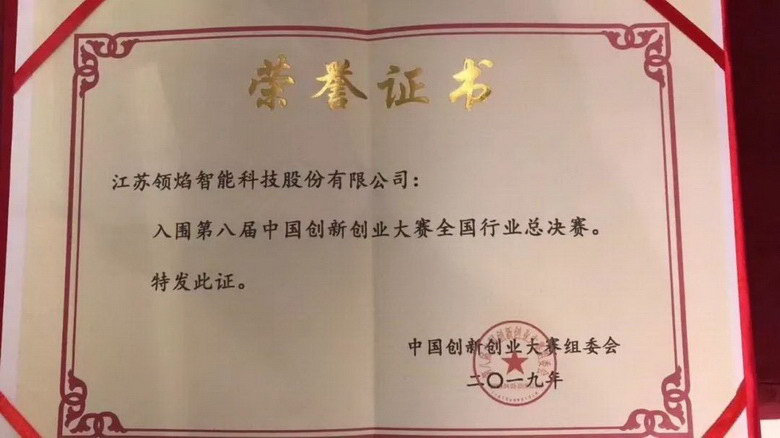 荣誉证书
江苏领焰智能科技股份有限公司：
入围第八届中国创新创业大赛全国行业总决赛。
特发此证。
中国创新创业大赛组委会
二〇一九年